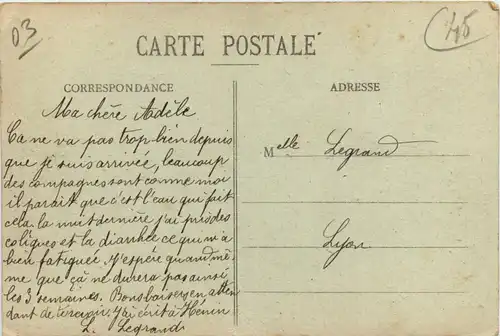 03
45
CARTE POSTALE
CORRESPONDANCE
ADRESSE
Ma chère Adèle
Ça ne va pas trop bien depuis
que je suis arrivée, beaucoup
des compagnes sont comme moi
il parait que c'est l'eau qui fait
cela la nuit dernière j'ai pris des
coliques et la diarrhée ce qui m'a
bien fatiguée. J'espère quand mê
me que çà ne durera pas ainsi
les 3 semaines. Bons baisers en atten
dant de te revoir. J'ai écrit à Hénin
L. Legrand
Melle Legrand
Lyon